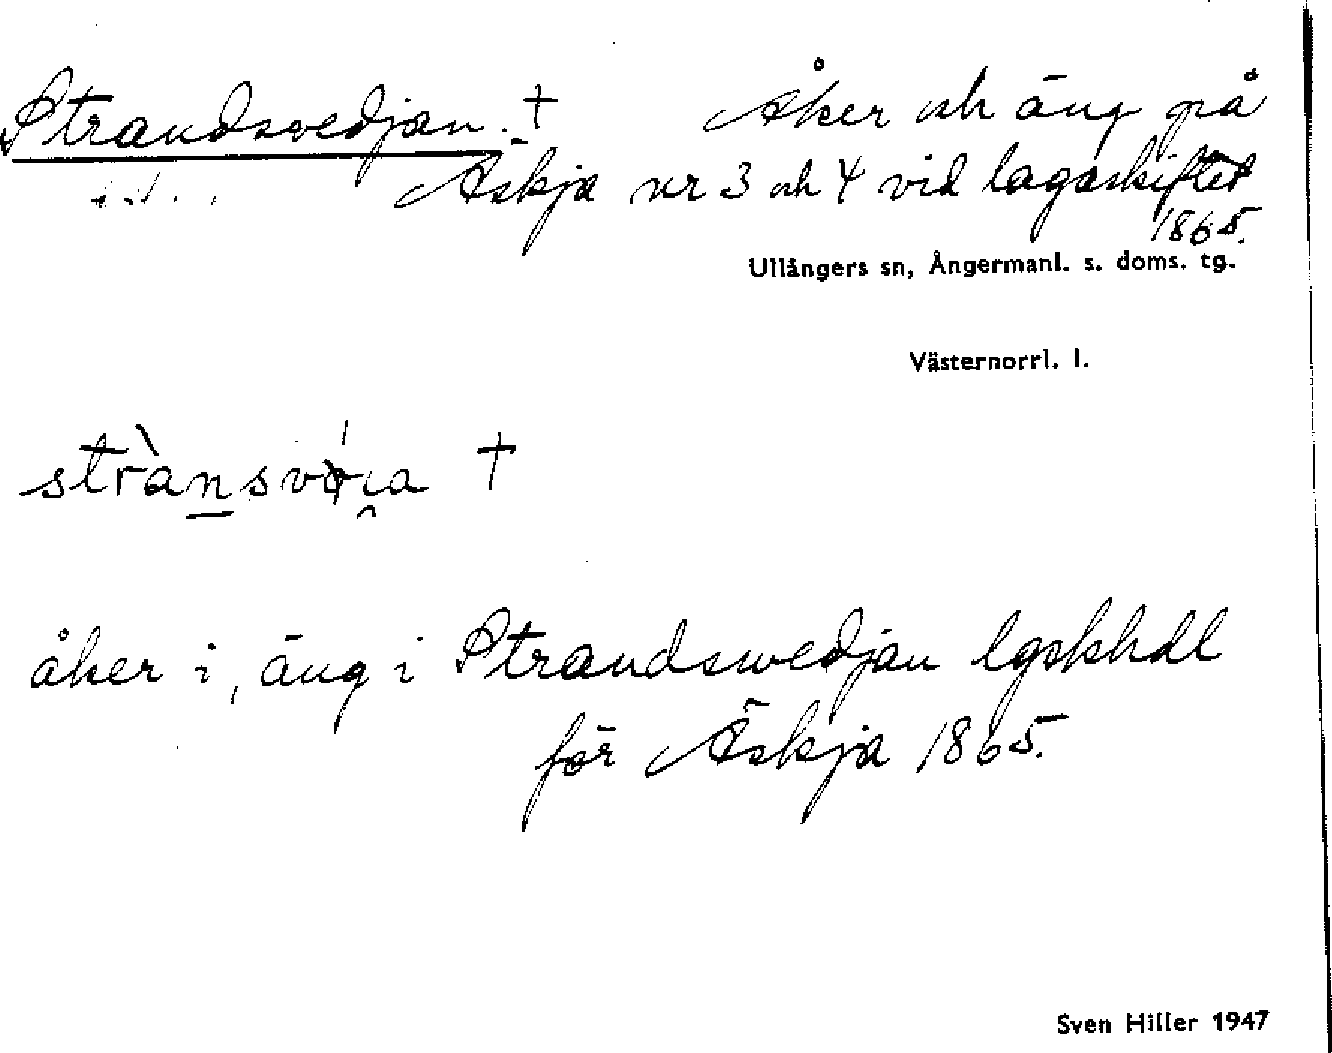 Strandsvedjan. † Åker och äng på
Äskja nr 3 och 4 vid lagaskiftet
1865.
Ullångers sn, Ångermanl. s. doms. tg.
Västernorrl. l.
†
åker i, äng i Strandswedjan lgskhdl
för Äskja 1865.
Sven Hiller 1947